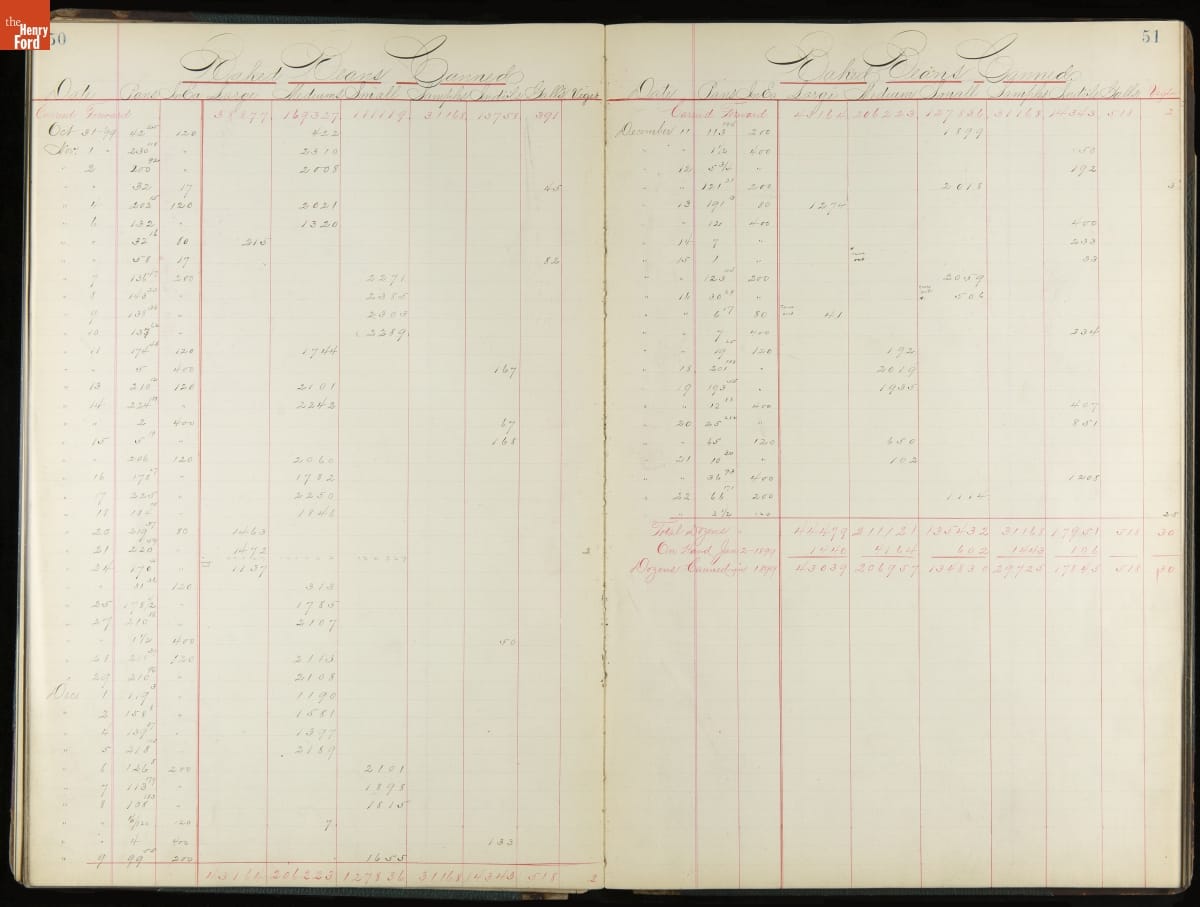 the
Henry
Ford
50
Baked Beans Canned
Date Pans In Ca Large Medium Small Indiv Galls
Carried Forward 38877 169327 111119 31168 13758 391
Oct 31-99 42 120 422
Nov. 1 " 230 " 2310
" 2 200 " 2008
" " 32 17 45
" 4 202 120 2021
" 6 132 " 1320
" " 32 80 215
" " 58 17 82
" 7 136 200 2271
" 8 143 " 2385
" 9 138 " 2303
" 10 137 " 2289
" 11 174 120 1744
" " 5 400 167
" 13 210 120 2101
" 14 224 " 2242
" " 2 400 67
" 15 5 " 168
" " 206 120 2060
" 16 178 " 1782
" 17 225 " 2250
" 18 184 " 1846
" 20 219 80 1463
" 21 220 " 1472 2
" 24 170 " 1137
" " 31 120 313
" 25 178½ " 1785
" 27 210 " 2107
" " 1½ 400 50
" 28 120 2113
" 29 210 " 2108
Dec 1 119 " 1190
" 2 158 " 1581
" 4 139 " 1397
" 5 218 " 2189
" 6 126 200 2101
" 7 113 " 1898
" 8 108 " 1815
" " 120 7
" " 4 400 133
" 9 99 200 1655
43164 206223 127836 31168 14343 518 2
51
Baked Beans Canned
Date Pans In Ca Large Medium Small Indiv Galls
Carried Forward 43164 206223 127836 31168 14343 518 2
December 11 113 200 1899
" " 1½ 400 50
" 12 5¾ " 192
" " 121 200 2018 3
" 13 191 80 1274
" " 12 400 400
" 14 7 " 233
" 15 1 " 33
" " 123 200 2059
" 16 30 " 506
" " 6 80 41
" " 7 400 234
" " 19 120 192
" 18 201 " 2019
" 19 193 " 1935
" " 12 400 407
" 20 25 " 851
" " 65 120 650
" 21 10 " 102
" " 36 400 1208
" 22 66 200 1114
" " 2½ 120 25
Total Dozens " 44479 211121 135432 31168 17951 518 30
On Hand Jan 2-1899 1440 4164 602 1443 106
Dozens Canned in 1899 43039 206957 134830 29725 17845 518 30